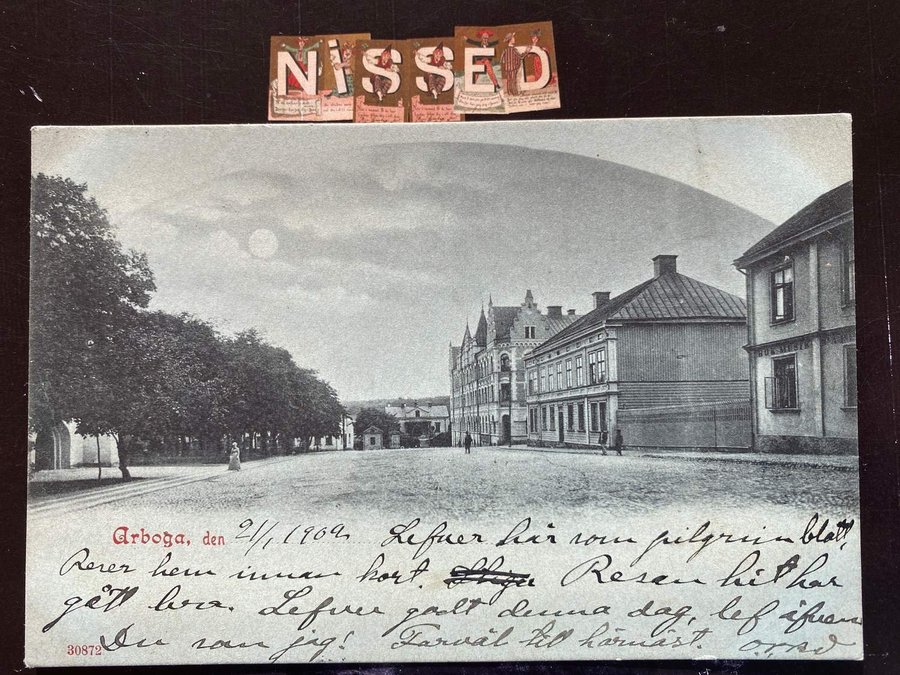 NiSSED
Arboga, den 21/1 1902 Lefver här som pilgrim blott,
Reser hem innan kort. Resan hit har
gått bra. Lefver godt denna dag, lef äfven
Du som jag! Farväl till härnäst.
30872